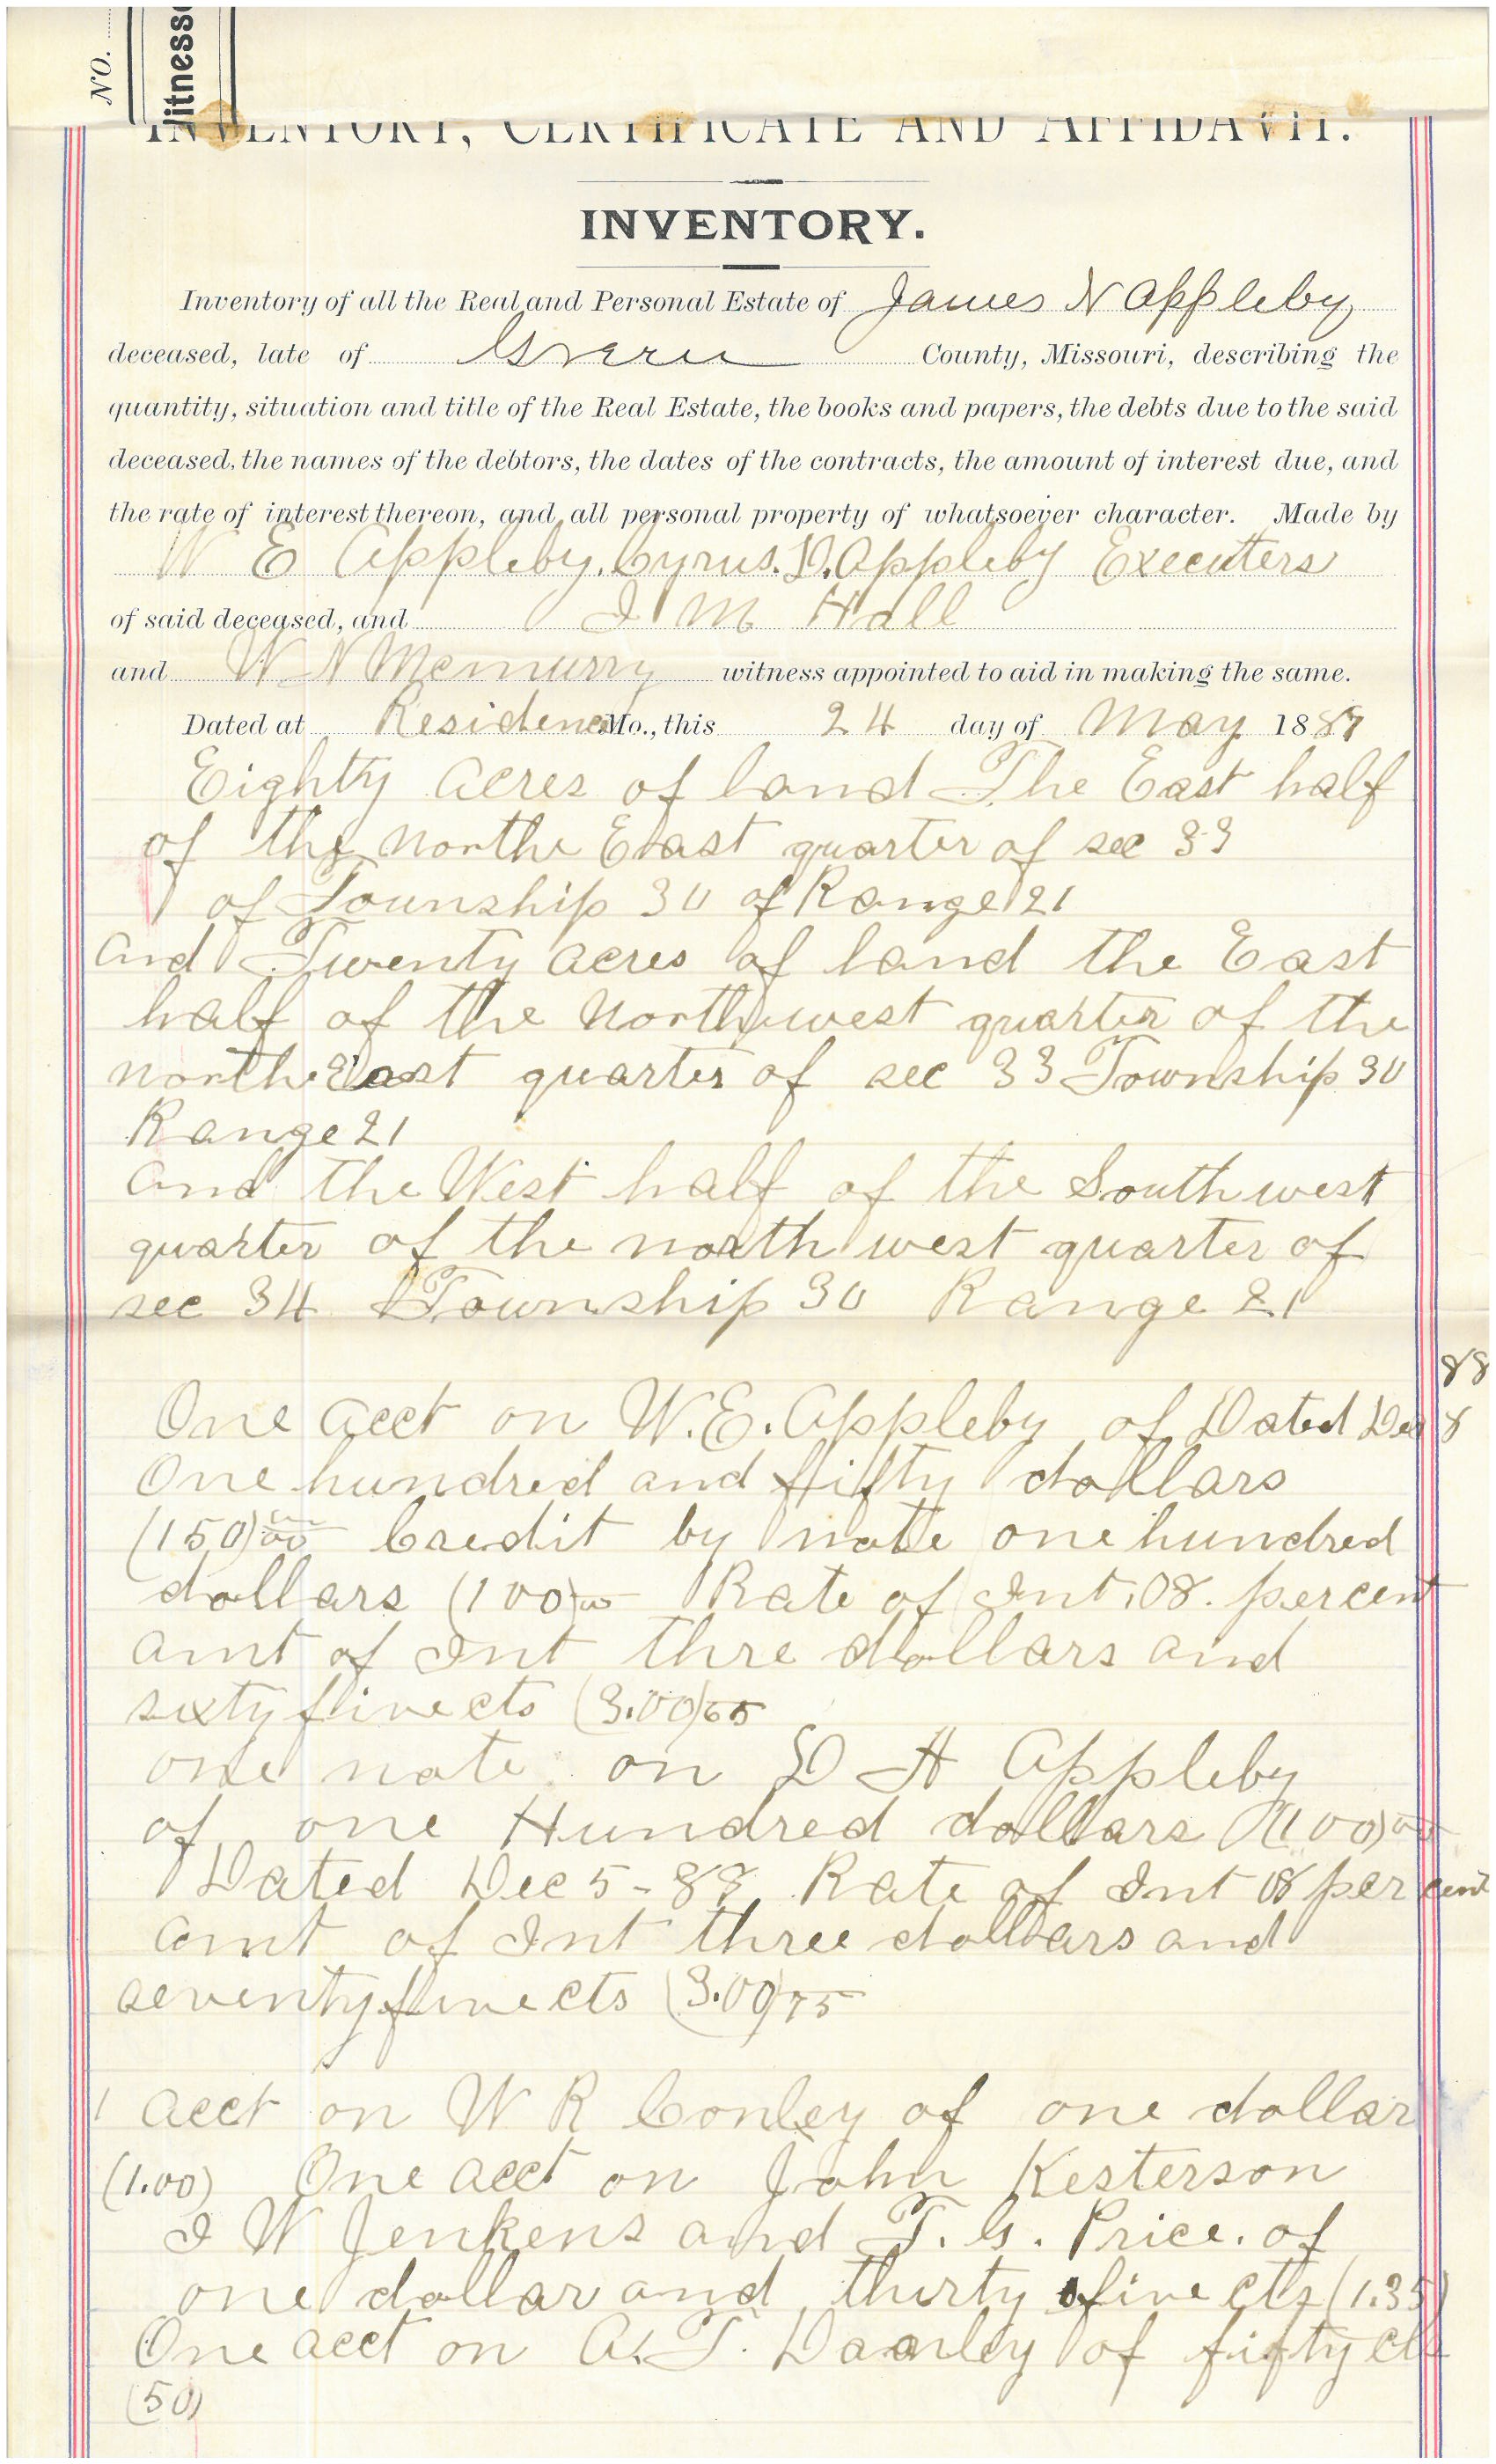 NO.
itness
INVENTORY, CERTIFICATE AND AFFIDAVIT.
INVENTORY.
Inventory of all the Real and Personal Estate of James N Appleby
deceased, late of Green County, Missouri, describing the
quantity, situation and title of the Real Estate, the books and papers, the debts due to the said
deceased, the names of the debtors, the dates of the contracts, the amount of interest due, and
the rate of interest thereon, and all personal property of whatsoever character. Made by
W E Appleby. Cyrus. D. Appleby Executers
of said deceased, and J M Hall
and W N Mcmurry witness appointed to aid in making the same.
Dated at Residence Mo., this 24 day of May 1889
Eighty acres of land The East half
of the northe East quarter of sec 33
of Township 30 of Range 21
and Twenty acres of land the East
half of the North west quarter of the
north East quarter of sec 33 Township 30
Range 21
and the West half of the South west
quarter of the north west quarter of
sec 34 Township 30 Range 21
88
One acct on W. E. Appleby of Dated Dec 8
One hundred and fifty dollars
(150)00 Credit by note one hundred
dollars (100)00 Rate of Int. 08. percent
amt of Int thre dollars and
sixty five cts (3.00)65
one note on D H Appleby
of one Hundred dollars (100)00
Dated Dec 5-88 Rate of Int 08 per cent
amt of Int three dollars and
seventy five cts (3.00)75
1 acct on W R Conley of one dollar
(1.00) One acct on John Kesterson
J W Jenkens and T. G. Price. of
one dollar and thirty five cts (1.35)
One acct on A. T. Danley of fifty cts
(50)